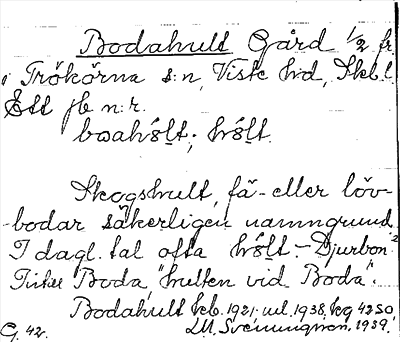 Bodahult Gård 1/2 fr
i Trökörna s:n, Viste hd, Skbl
Ett jb n:r.
boahólt; hólt.
Skogshult, fä- eller löv-
bodar säkerligen namngrund.
I dagl. tal ofta hólt.- Djurbon?
Boda, "hulten vid Boda".
Bodahult kcb. 1921, uel. 1938, kg 4250,
G. 42. LM. Svenungson, 1939.